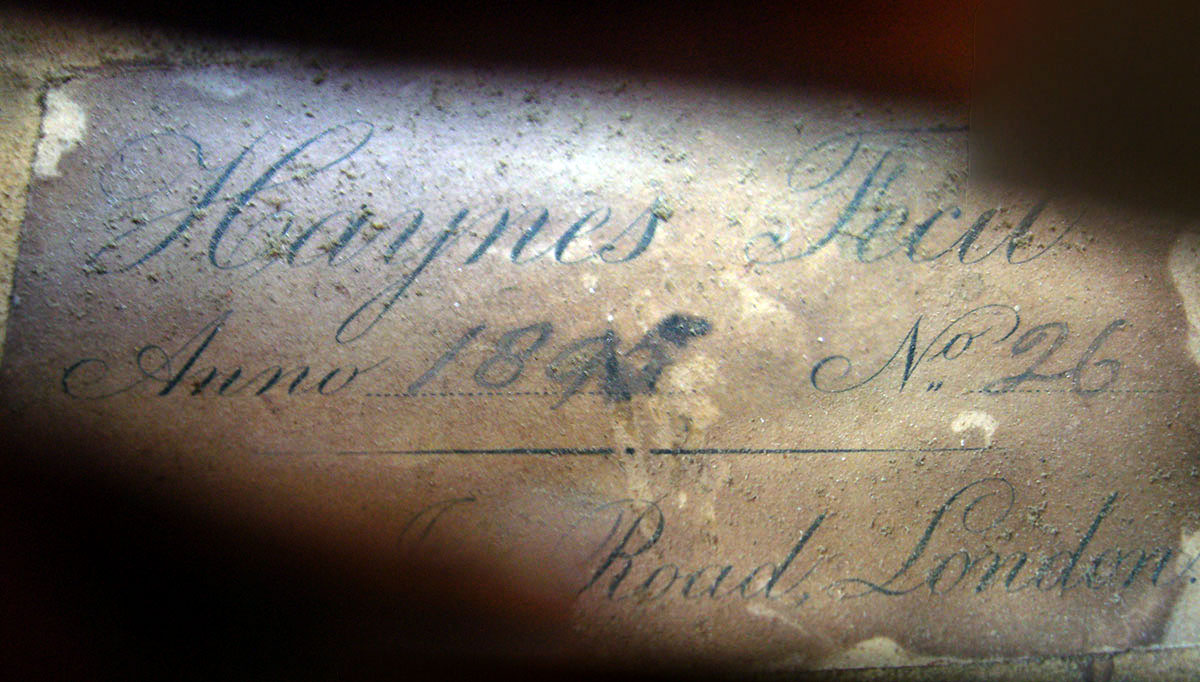 Haynes Fecit
Anno No 26
Road, London.